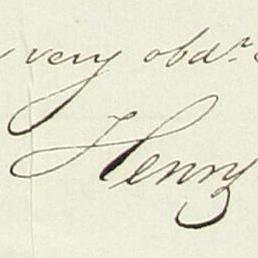 very obdr.
Henry